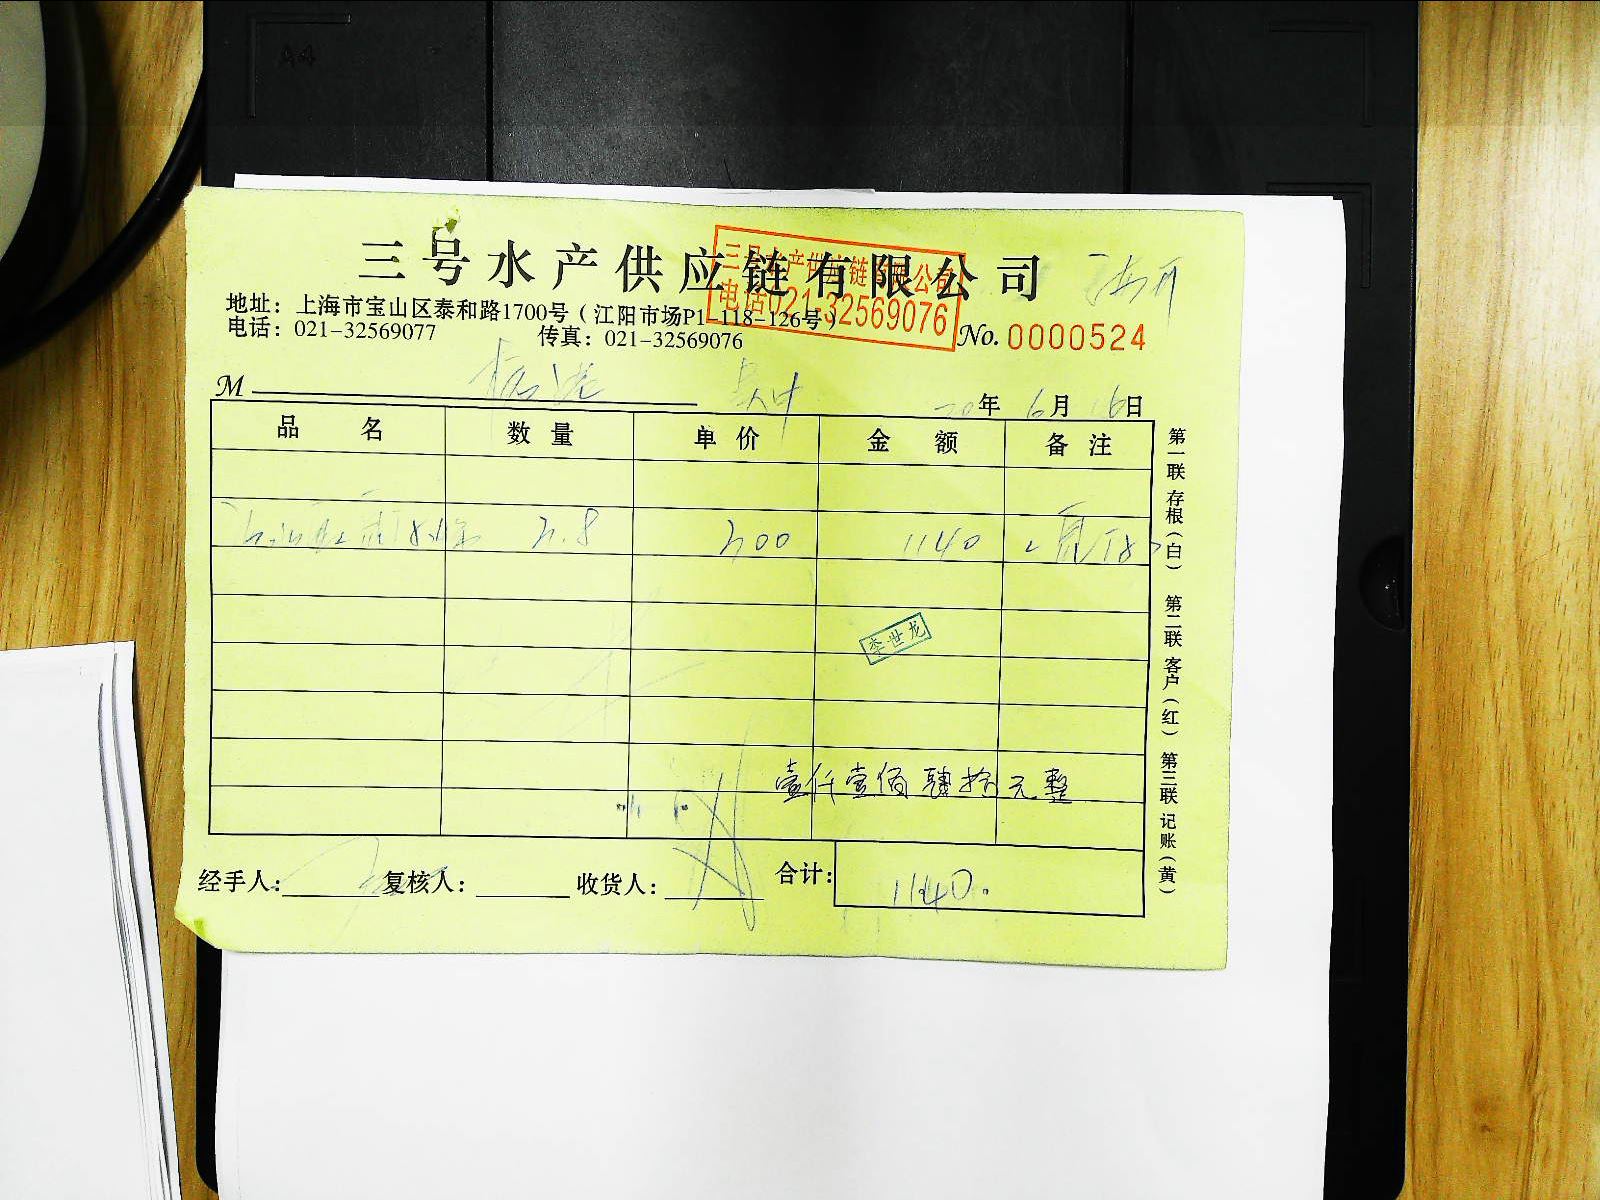 A4
三号水产供应链有限公司
三号水产供应链有限公司
电话021-32569076
地址：上海市宝山区泰和路1700号（江阳市场P1-118-126号）
电话：021-32569077 传真：021-32569076
No. 0000524
M
20年 6月 16日
品 名 数 量 单 价 金 额 备 注
3.8 300 1140
李世龙
壹仟壹佰肆拾元整
经手人： 复核人： 收货人： 合计： 1140.
第一联 存根（白） 第二联 客户（红） 第三联 记账（黄）